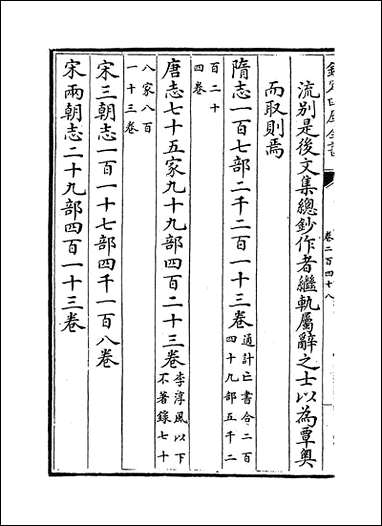 欽定四庫全書
卷二百四十八
流别是後文集總鈔作者繼軌屬辭之士以為覃奥
而取則焉
隋志一百七部二千二百一十三卷通計亡書合二百四十九部五千二
百二十四卷
唐志七十五家九十九部四百二十三卷李淳風以下不著錄七十
八家八百一十三卷
宋三朝志一百一十七部四千一百八卷
宋兩朝志二十九部四百一十三卷